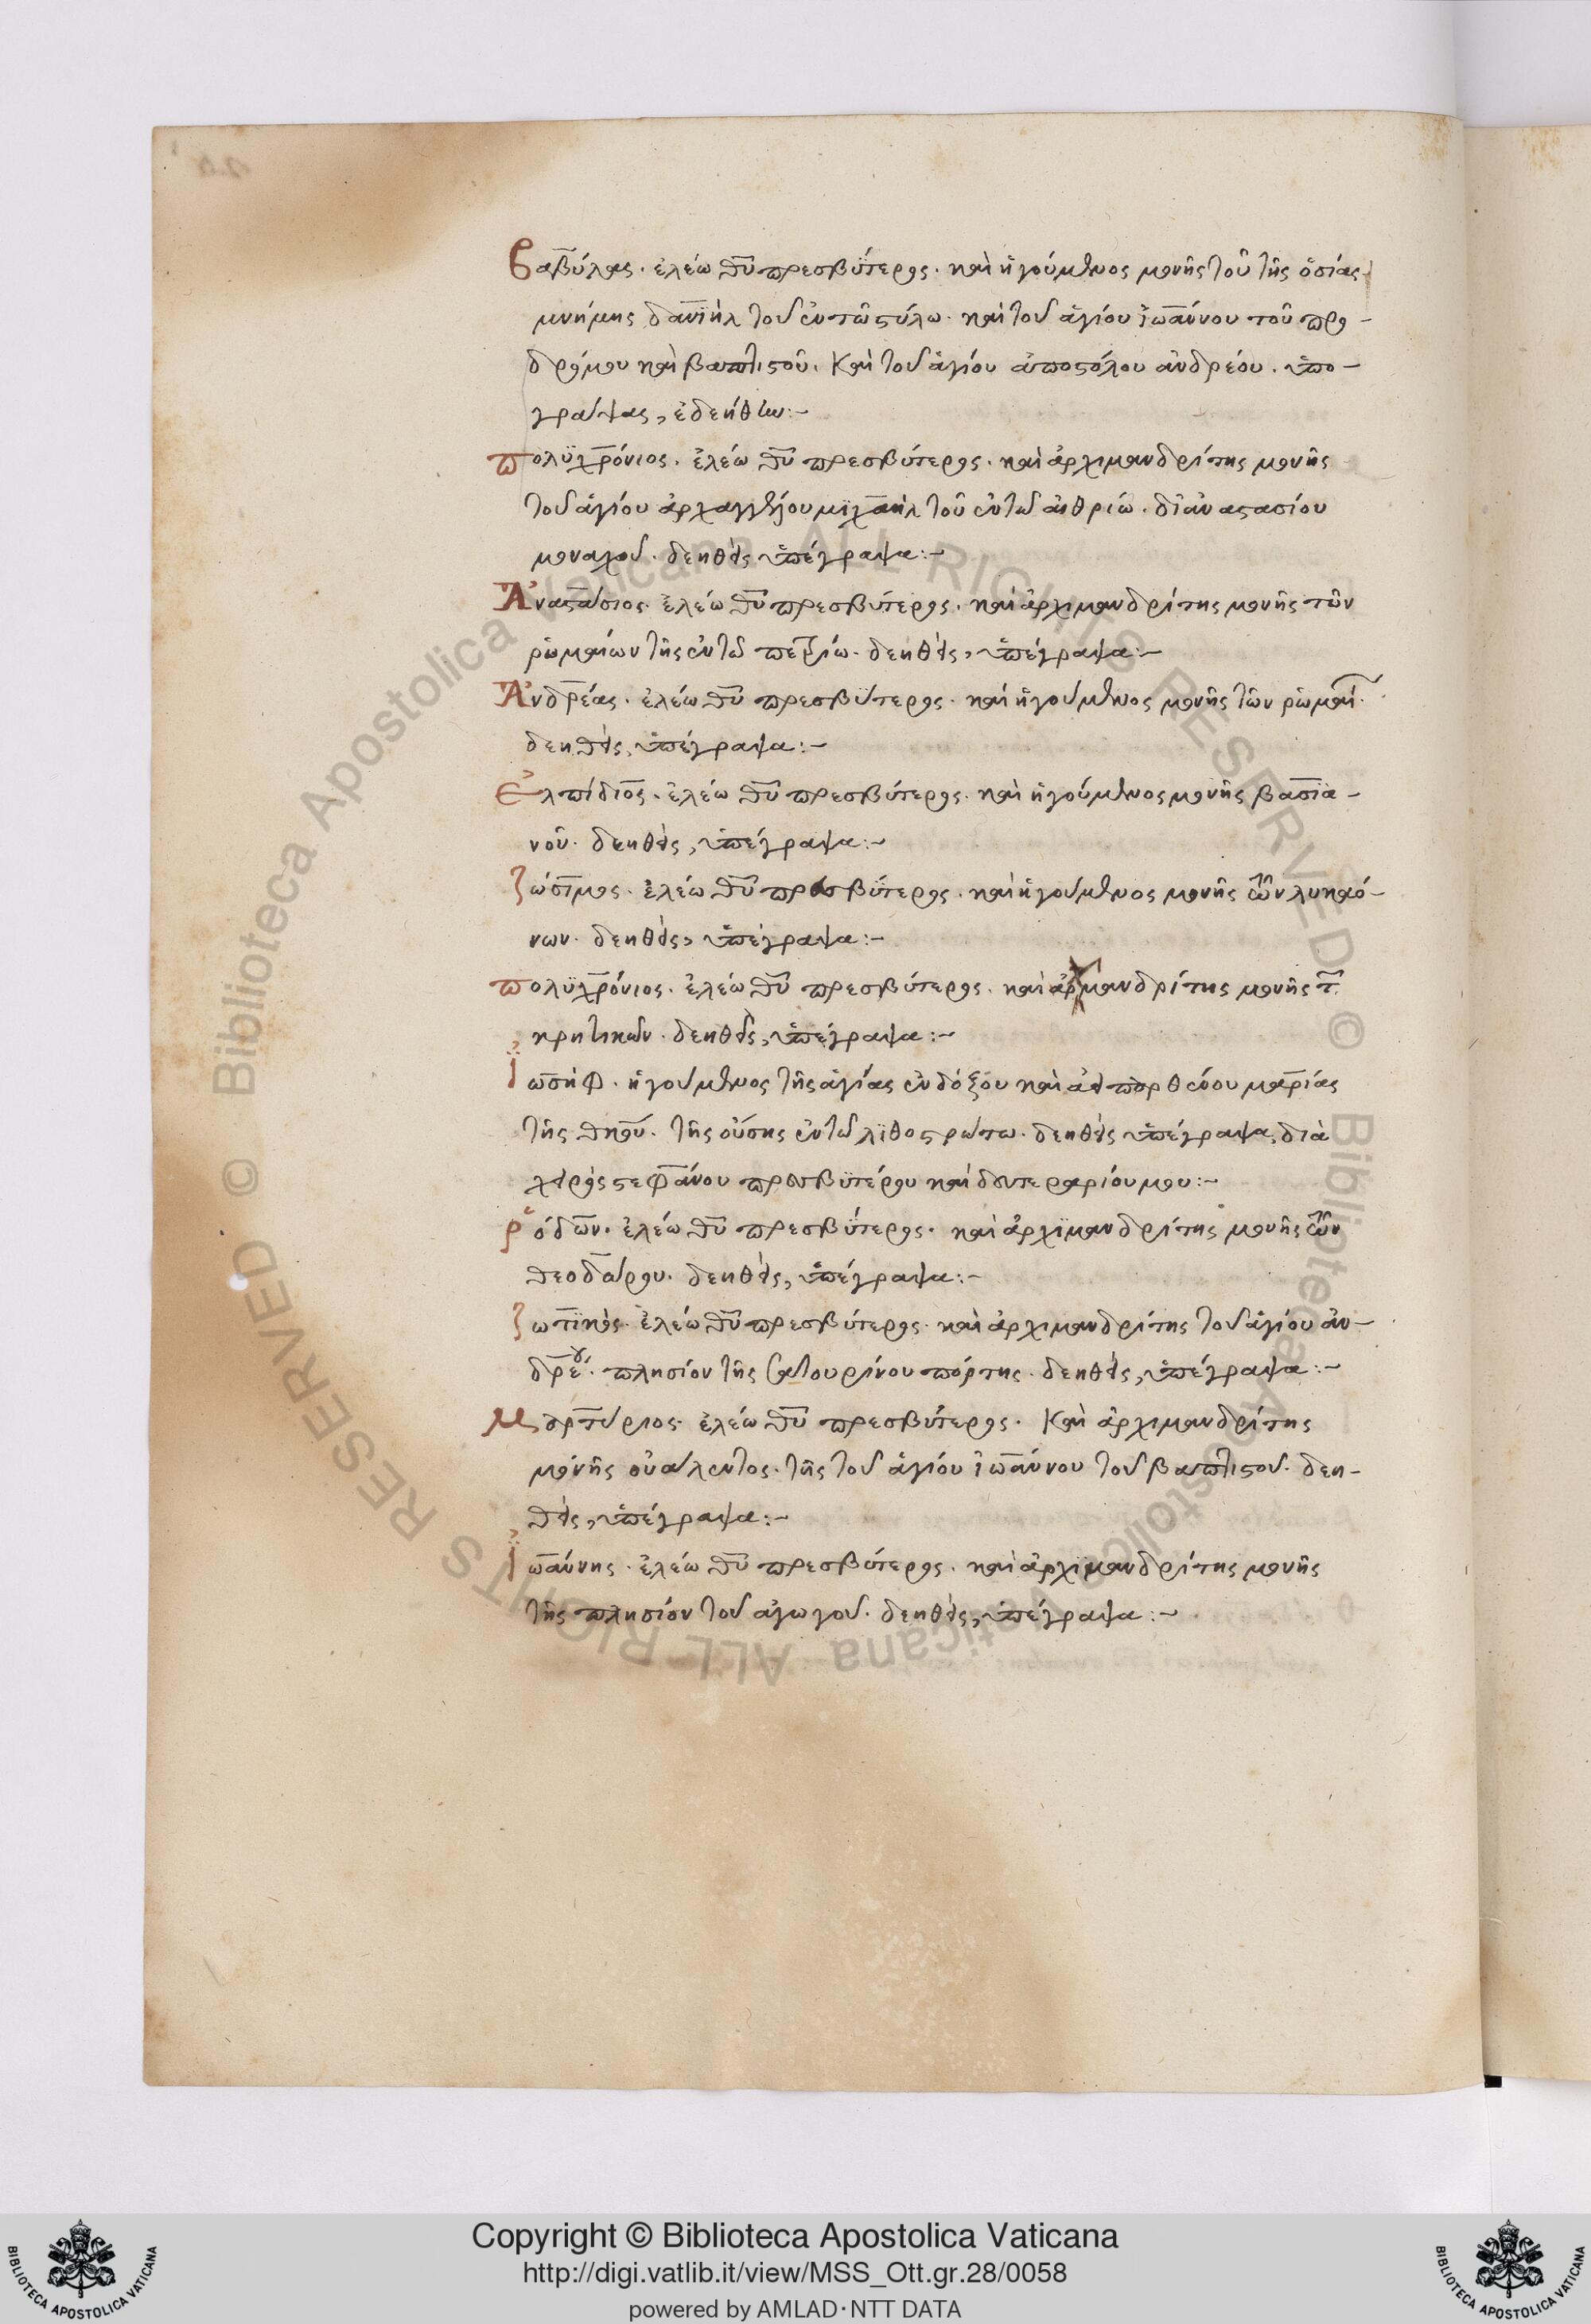 Βαβύλας. ἐλέω θυ πρεσβύτερος. καὶ ἡγούμενος μονῆς τοῦ τῆς ὁσίας
μνήμης δανϊὴλ τοῦ ἐν τῶ στύλω. καὶ τοῦ ἁγίου ἰωάννου τοῦ προ-
δρόμου καὶ βαπτιστοῦ. Καὶ τοῦ ἁγίου ἀποστόλου ἀνδρέου. ὑπο-
γράψας, ἐδεήθην:-
πολϋχρόνιος. ἐλέω θυ πρεσβύτερος. καὶ ἀρχιμανδρίτης μονῆς
τοῦ ἁγίου ἀρχαγγέλου μϊχαὴλ τοῦ ἐν τῶ αἰθρίω. δι ἀναστασίου
μοναχοῦ. δεηθεὶς ὑπέγραψα:-
Ἀναστάσιος. ἐλέω θυ πρεσβύτερος. καὶ ἀρχιμανδρίτης μονῆς τῶν
ῥωμαίων τῆς ἐν τῶ πετρίω. δεηθεὶς, ὑπέγραψα:-
Ἀνδρέας. ἐλέω θυ πρεσβύτερος. καὶ ἡγούμενος μονῆς τῶν ῥωμαί.
δεηθεὶς, ὑπέγραψα:-
Ἐλπίδιος. ἐλέω θυ πρεσβύτερος. καὶ ἡγούμενος μονῆς βασϊα-
νοῦ. δεηθεὶς, ὑπέγραψα:-
ζώσιμος. ἐλέω θυ πρεσβύτερος. καὶ ἡγούμενος μονῆς τῶν λυκαό-
νων. δεηθεὶς, ὑπέγραψα:-
πολϋχρόνιος. ἐλέω θυ πρεσβύτερος. καὶ ἀρχμανδρίτης μονῆς τ.
κρητικῶν. δεηθεὶς, ὑπέγραψα:-
Ἰωσὴφ. ἡγούμενος τῆς ἁγίας ἐνδόξου καὶ ἀειπαρθένου μαρίας
τῆς θκου. τῆς οὔσης ἐν τῶ λϊθοστρώτω. δεηθεὶς ὑπέγραψα, διὰ
χειρὸς στεφάνου πρεσβϋτέρου καὶ δευτεραρίου μου:-
Ῥόδων. ἐλέω θυ πρεσβύτερος. καὶ ἀρχϊμανδρίτης μονῆς τῶν
θεοδώρου. δεηθεὶς, ὑπέγραψα:-
ζωτϊκὸς. ἐλέω θυ πρεσβύτερος. καὶ ἀρχιμανδρίτης τοῦ ἁγίου ἀν-
δρέου. πλησίον τῆς σατουρίνου πόρτης. δεηθεὶς, ὑπέγραψα:-
Μαρτύριος. ἐλέω θυ πρεσβύτερος. Καὶ ἀρχιμανδρίτης
μόνῆς οὐάλεντος. τῆς τοῦ ἁγίου ἰωάννου τοῦ βαπτιστοῦ. δεη-
θεὶς, ὑπέγραψα:-
Ἰωάννης. ἐλέω θυ πρεσβύτερος. καὶ ἀρχϊμανδρίτης μονῆς
τῆς πλησίον τοῦ ἀγωγοῦ. δεηθεὶς, ὑπέγραψα:-
Biblioteca Apostolica Vaticana ALL RIGHTS RESERVED © Biblioteca Apostolica Vaticana ALL RIGHTS RESERVED ©
Copyright © Biblioteca Apostolica Vaticana
http://digi.vatlib.it/view/MSS_Ott.gr.28/0058
powered by AMLAD·NTT DATA
BIBLIOTECA APOSTOLICA VATICANA
BIBLIOTECA APOSTOLICA VATICANA